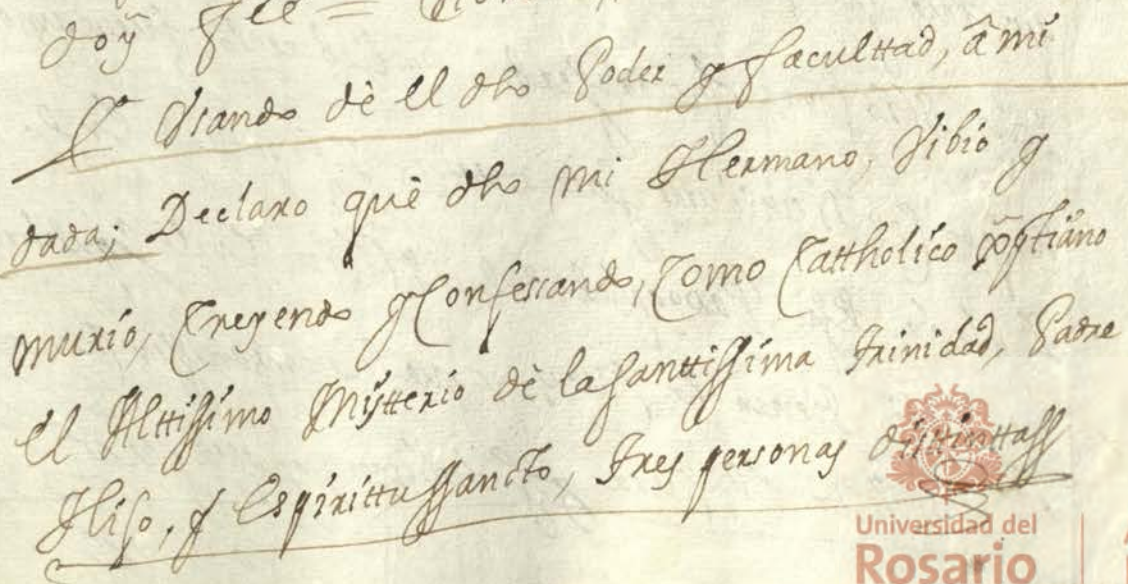 doÿ fee =
Vsando dè el dho Poder y facultad, â mi
dada; Declaro què dho mi Hermano, Vibio y
murio, Creyendo y Confessando, Como Cattholico xptiano
el Alttissimo Mistterio dè la Santtissima Trinidad, Padre
Hijo, y Espirittu Sancto, Tres personas distinttass
Universidad del
Rosario